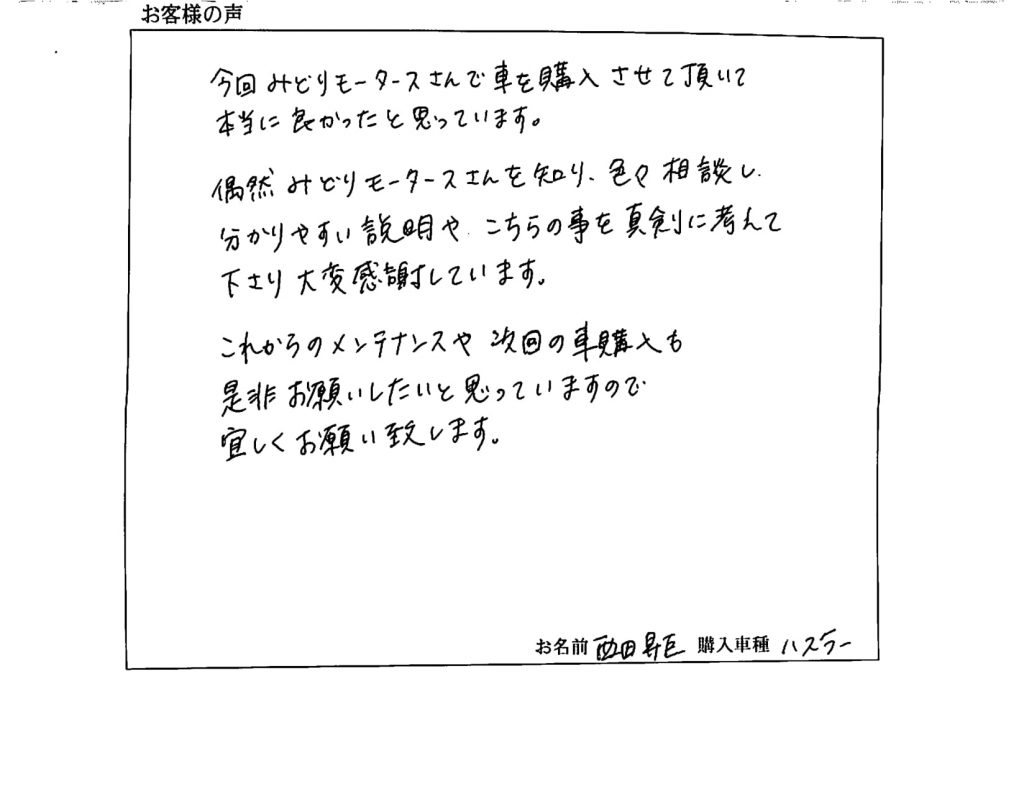 お客様の声
今回みどりモータースさんで車を購入させて頂いて
本当に良かったと思っています。
偶然みどりモータースさんを知り、色々相談し、
分かりやすい説明や、こちらの事を真剣に考えて
下さり大変感謝しています。
これからのメンテナンスや次回の車購入も
是非お願いしたいと思っていますので
宜しくお願い致します。
お名前 西田昇巨 購入車種 ハスラー